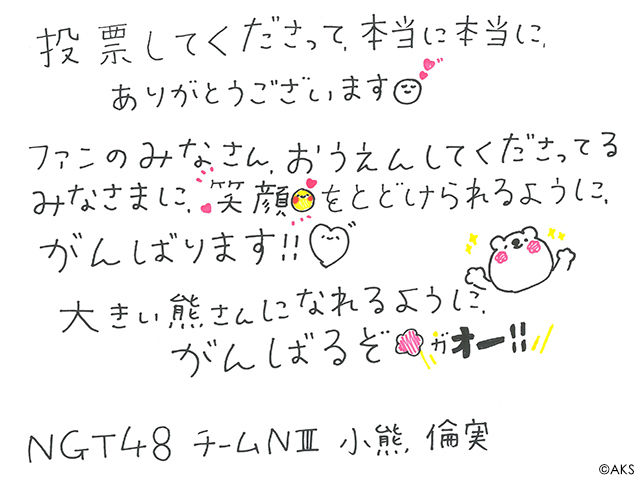 投票してくださって、本当に本当に、
ありがとうございます
ファンのみなさん、おうえんしてくださってる
みなさまに、笑顔をとどけられるように、
がんばります!!
大きい熊さんになれるように、
がんばるぞ ガオー!!
NGT48 チームNⅢ 小熊 倫実
©AKS